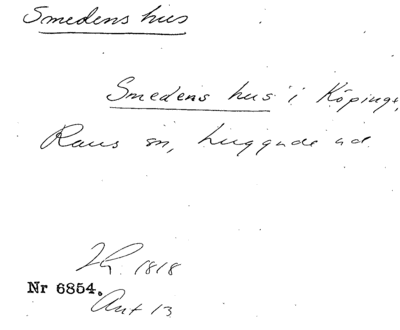 Smedens hus
Smedens hus i Köpinge,
Raus sn, Luggude hd
1818
Nr 6854.
Ant 13